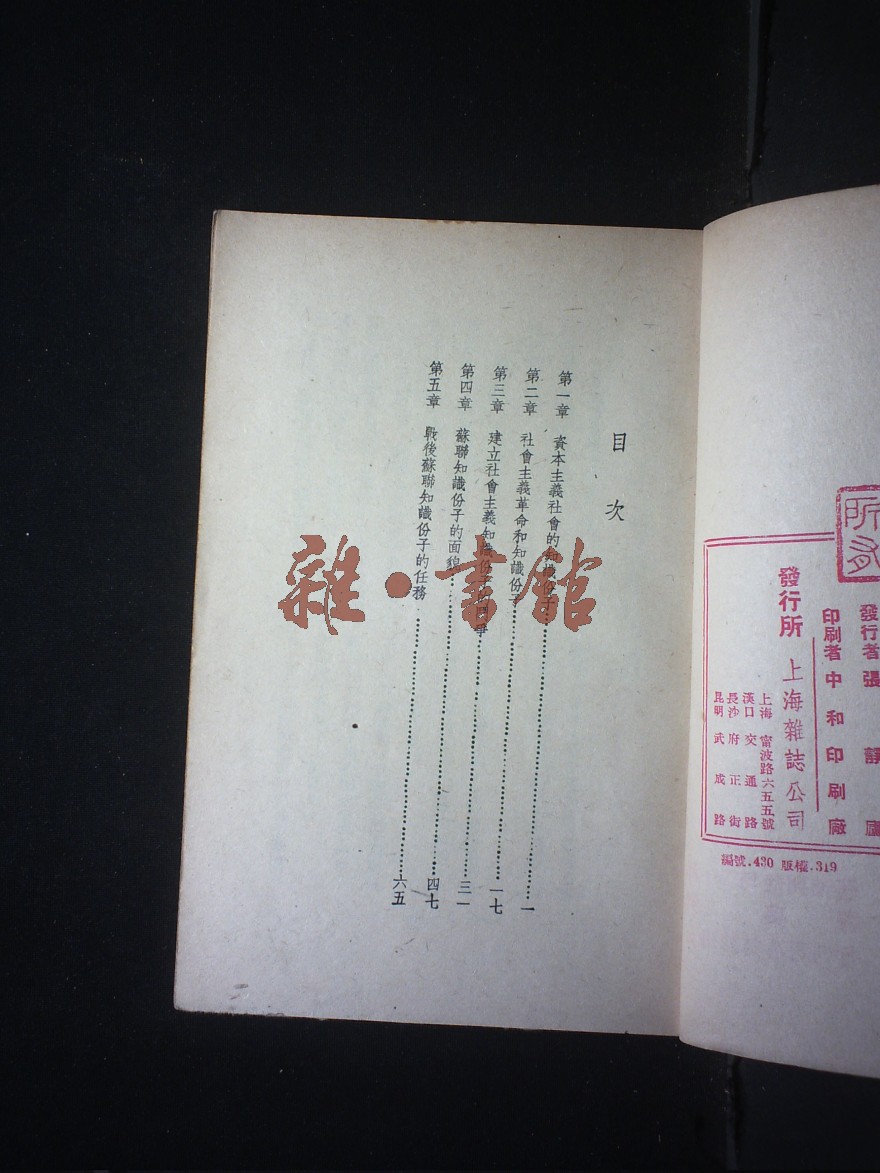 目次
第一章 資本主義社會的知識份子 一
第二章 社會主義革命和知識份子 一七
第三章 建立社會主義知識份子的鬥爭 三一
第四章 蘇聯知識份子的面貌 四七
第五章 戰後蘇聯知識份子的任務 六五
雜·書館
所有
發行者 張靜廬
印刷者 中和印刷廠
發行所 上海雜誌公司
上海 甯波路六五五號
漢口 交通路
長沙 府正街
昆明 武成路
編號.430 版權.319